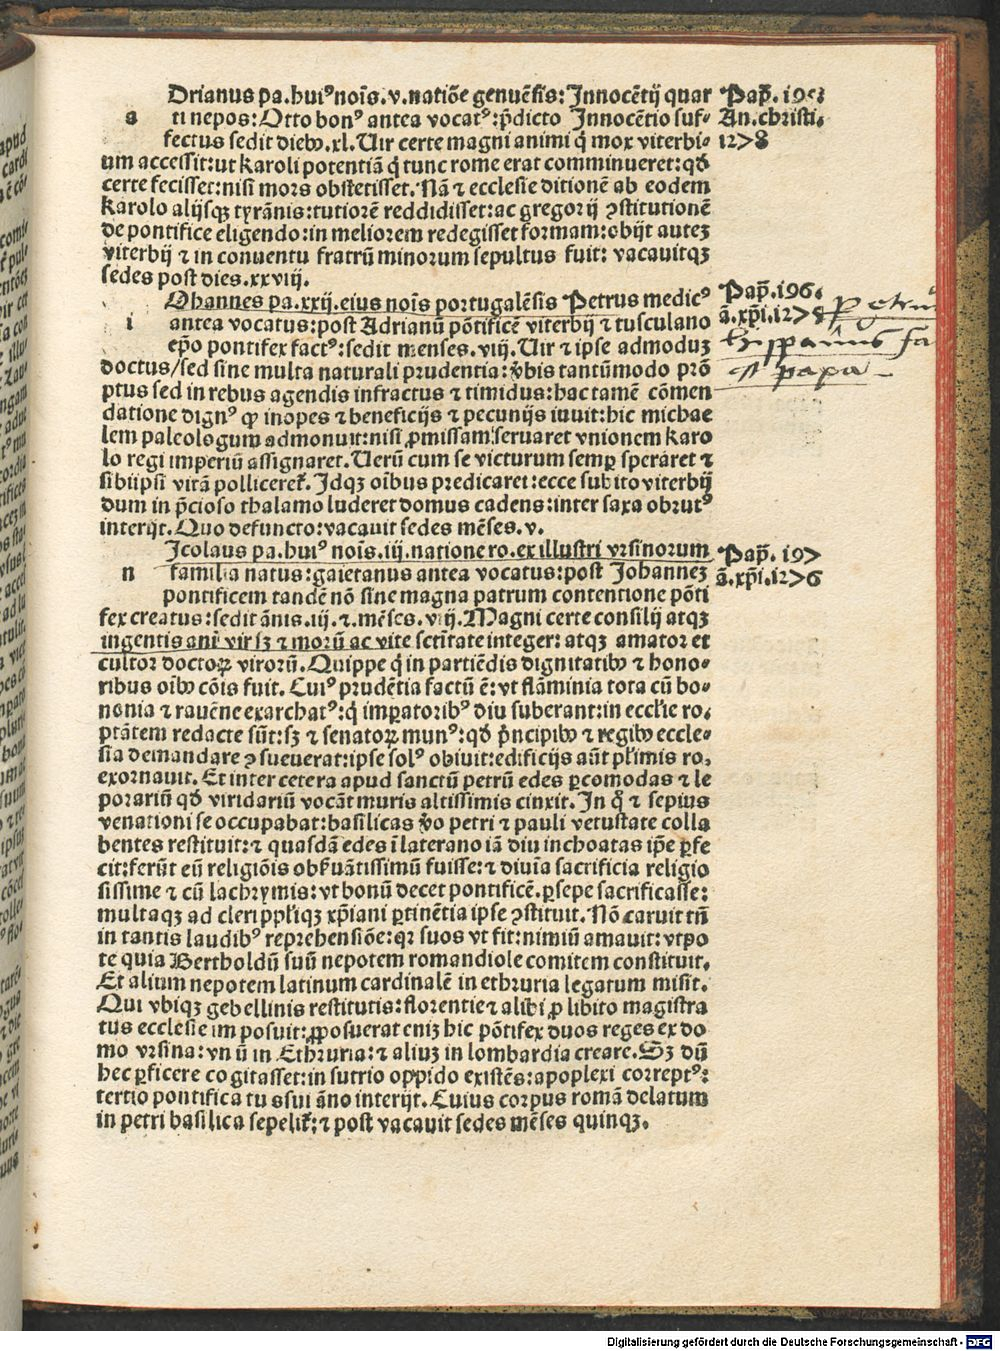 Drianus pa. huiꝰ noīs. v. natiōe genuēsis: Innocētij quar
a ti nepos: Otto bonꝰ antea vocatꝰ: p̄dicto Innocētio suf-
fectus sedit diebꝫ. xl. Uir certe magni animi q̇ mox viterbi-
um accessit: ut Karoli potentiā q̇ tunc rome erat comminueret: qđ
certe fecisset: nisi mors obstetisset. Nā ⁊ ecclesie ditionē ab eodem
Karolo alijsqꝫ tyrānis: tutiorē reddidisset: ac gregorij ꝯstitutionē
de pontifice eligendo: in meliorem redegisset formam: obijt auteꝫ
viterbij ⁊ in conuentu fratrū minorum sepultus fuit: vacauitqꝫ
sedes post dies. xxviij.
Ohannes pa. xxij. eius noīs portugalēsis Petrus medicꝰ
i antea vocatus: post Adrianū pōtificē viterbij ⁊ tusculano
ep̄o pontifex factꝰ: sedit menses. viij. Uir ⁊ ipse admoduꝫ
doctus/sed sine multa naturali prudentia: v̄bis tantūmodo prō
ptus sed in rebus agendis infractus ⁊ timidus: hac tamē cōmen
datione dignꝰ ꝙ inopes ⁊ beneficijs ⁊ pecunijs iuuit: hic michae
lem paleologum admonuit: nisi ꝓmissam seruaret vnionem Karo
lo regi imperiū assignaret. Uerū cum se victurum semꝑ speraret ⁊
sibiipsi vitā polliceret᷑. Idqꝫ oībus predicaret: ecce subito viterbij
dum in p̄cioso thalamo luderet domus cadens: inter saxa obrutꝰ
interijt. Quo defuncto: vacauit sedes mēses. v.
Icolaus pa. huiꝰ noīs. iij. natione ro. ex illustri vrsinorum
n familia natus: gaietanus antea vocatus: post Johanneꝫ
pontificem tandē nō sine magna patrum contentione pōti
fex creatus: sedit ānis. iij. ⁊. mēses. viij. Magni certe consilij atqꝫ
ingentis ani᷑ vir sꝫ ⁊ morū ac vite sctītate integer: atqꝫ amator et
cultor doctoꝝ virorū. Quippe q̇ in partiēdis dignitatibꝫ ⁊ hono-
ribus oībꝫ cōis fuit. Cuiꝰ prudētia factū ē: vt flāminia tota cū bo-
nonia ⁊ rauēne exarchatꝰ: q̇ imꝑatoribꝰ diu suberant: in eccl'ie ro.
ptātem redacte sūt: sꝫ ⁊ senatoꝝ munꝰ: qđ p̄ncipibꝫ ⁊ regibꝫ eccle-
sia demandare ꝯsueuerat: ipse solꝰ obiuit: edificijs aūt pl'imis ro.
exornauit. Et inter cetera apud sanctū petrū edes ꝑcomodas ⁊ le
porariū qđ viridariū vocāt muris altissimis cinxit. In q̊ ⁊ sepius
venationi se occupabat: basilicas v̊o petri ⁊ pauli vetustate colla
bentes restituit: ⁊ quasdā edes ī laterano iā diu inchoatas ip̄e ꝑfe
cit: ferūt eū religiōis obẜuātissimū fuisse: ⁊ diuīa sacrificia religio
sissime ⁊ cū lachrymis: vt bonū decet pontificē. ꝑsepe sacrificasse:
multaqꝫ ad cleri ppl'iqꝫ xp̄iani ꝑtinētia ipse ꝯstituit. Nō caruit tn̄
in tantis laudibꝰ reprehensiōe: qꝛ suos vt fit: nimiū amauit: vtpo
te quia Bertholdū suū nepotem romandiole comitem constituit.
Et alium nepotem latinum cardinalē in ethruria legatum misit.
Qui vbiqꝫ gebellinis restitutis: florentie ⁊ alibi ꝓ libito magistra
tus ecclesie imposuit: ꝓposuerat eniꝫ hic pōtifex duos reges ex do
mo vrsina: vnū in Ethruria: ⁊ aliuꝫ in lombardia creare. Sꝫ dū
hec ꝑficere cogitasset: in sutrio oppido existēs: apoplexi correptꝰ:
tertio pontificatus sui āno interijt. Cuius corpus romā delatum
in petri basilica sepelit᷑: ⁊ post vacauit sedes mēses quinqꝫ.
Pap̄. 195
An. christi.
1278
Pap̄. 196.
ā. xp̄i. 1278
petrus
hispanus fa
ct papa
Pap̄. 197
ā. xp̄i. 1276
Digitalisierung gefördert durch die Deutsche Forschungsgemeinschaft - DFG